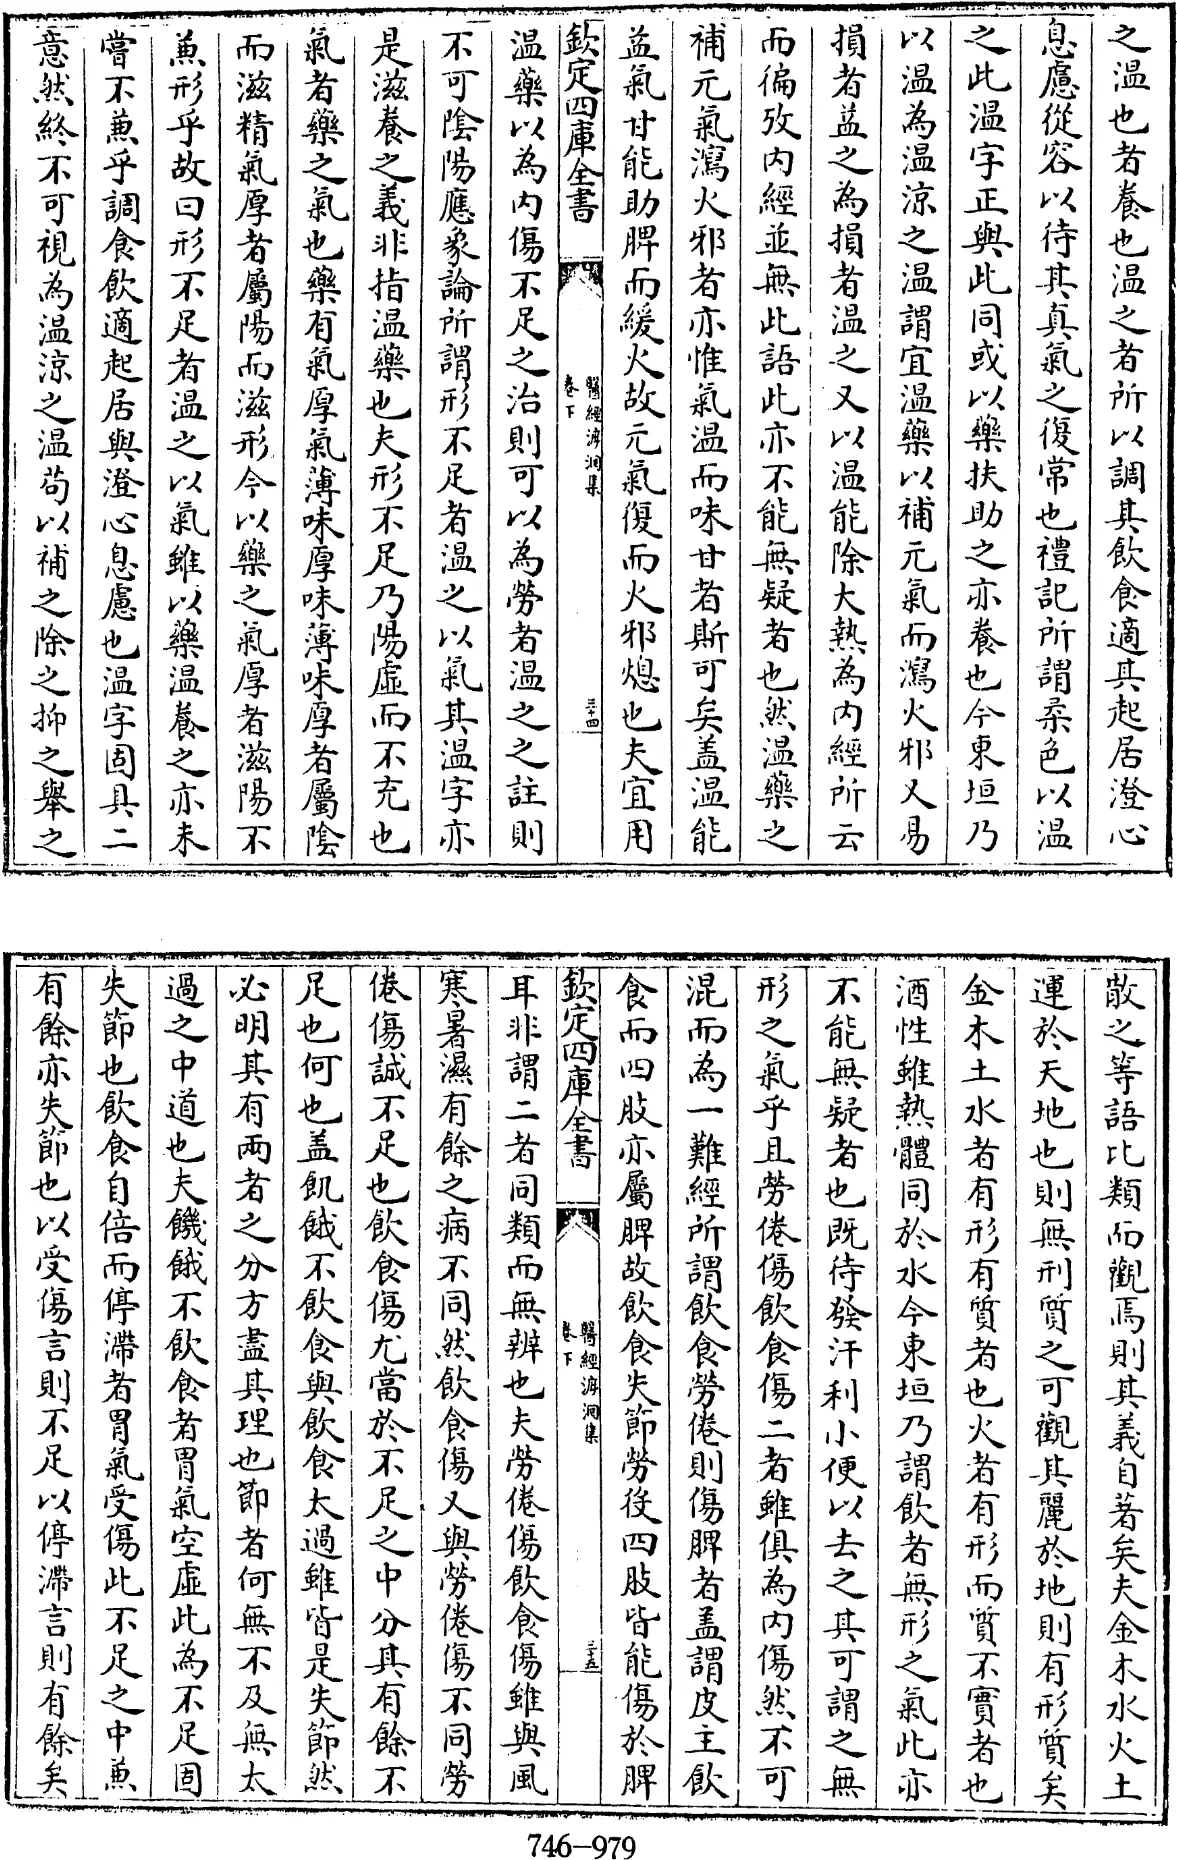 之温也者養也温之者所以調其飲食適其起居澄心
息慮從容以待其真氣之復常也禮記所謂柔色以温
之此温字正與此同或以藥扶助之亦養也今東垣乃
以温為温涼之温謂宜温藥以補元氣而瀉火邪又易
損者益之為損者温之又以温能除大熱為内經所云
而徧攷内經並無此語此亦不能無疑者也然温藥之
補元氣瀉火邪者亦惟氣温而味甘者斯可矣盖温能
益氣甘能助脾而緩火故元氣復而火邪熄也夫宜用
欽定四庫全書
醫經溯洄集
卷下
三十四
温藥以為内傷不足之治則可以為勞者温之之註則
不可陰陽應象論所謂形不足者温之以氣其温字亦
是滋養之義非指温藥也夫形不足乃陽虚而不充也
氣者藥之氣也藥有氣厚氣薄味厚味薄味厚者屬陰
而滋精氣厚者屬陽而滋形今以藥之氣厚者滋陽不
兼形乎故曰形不足者温之以氣雖以藥温養之亦未
嘗不兼乎調食飲適起居與澄心息慮也温字固具二
意然終不可視為温涼之温茍以補之除之抑之舉之
散之等語比類而觀焉則其義自著矣夫金木水火土
運於天地也則無形質之可觀其麗於地則有形質矣
金木土水者有形有質者也火者有形而質不實者也
酒性雖熱體同於水今東垣乃謂飲者無形之氣此亦
不能無疑者也既待發汗利小便以去之其可謂之無
形之氣乎且勞倦傷飲食傷二者雖俱為内傷然不可
混而為一難經所謂飲食勞倦則傷脾者盖謂皮主飲
食而四肢亦屬脾故飲食失節勞役四肢皆能傷於脾
欽定四庫全書
醫經溯洄集
卷下
三十五
耳非謂二者同類而無辨也夫勞倦傷飲食傷雖與風
寒暑濕有餘之病不同然飲食傷又與勞倦傷不同勞
倦傷誠不足也飲食傷尤當於不足之中分其有餘不
足也何也盖飢餓不飲食與飲食太過雖皆是失節然
必明其有兩者之分方盡其理也節者何無不及無太
過之中道也夫饑餓不飲食者胃氣空虚此為不足固
失節也飲食自倍而停滯者胃氣受傷此不足之中兼
有餘亦失節也以受傷言則不足以停滯言則有餘矣
746-979